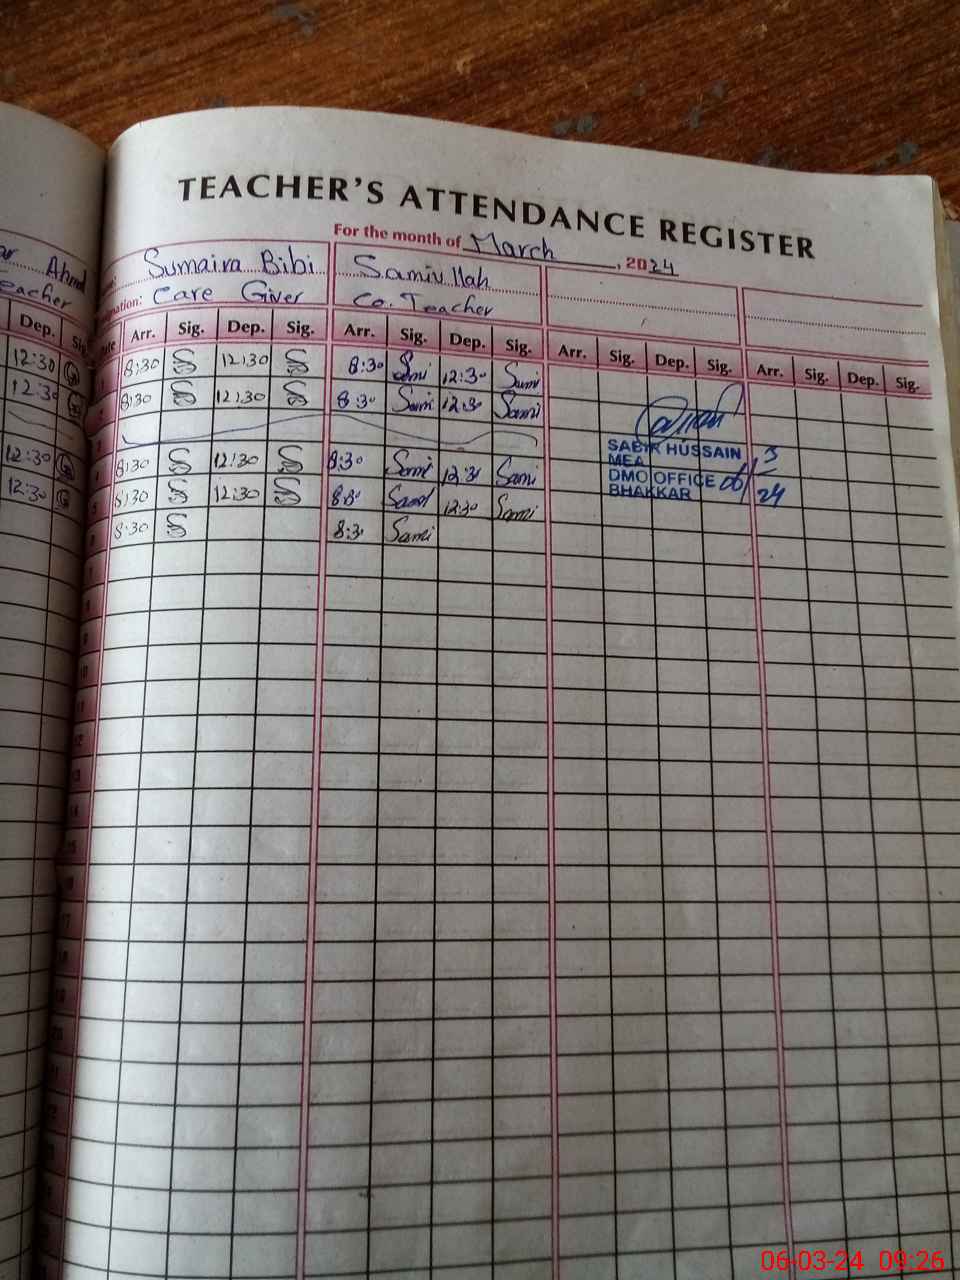 TEACHER'S ATTENDANCE REGISTER
For the month of March, 2024
Ahmd Sumaira Bibi Samiullah
eacher nation: Care Giver Co. Teacher
Dep. Arr. Sig. Dep. Sig. Arr. Sig. Dep. Sig. Arr. Sig. Dep. Sig. Arr. Sig. Dep. Sig.
12:30 8:30 12:30 8:30 Sami 12:30 Sami
12:30 8:30 12:30 8:30 Sami 12:30 Sami
12:30 8:30 12:30 8:30 Sami 12:30 Sami
12:30 8:30 12:30 8:30 Sami 12:30 Sami
8:30 8:30 Sami
SABIR HUSSAIN
MEA
DMO OFFICE
BHAKKAR
06/3/24
06-03-24 09:26